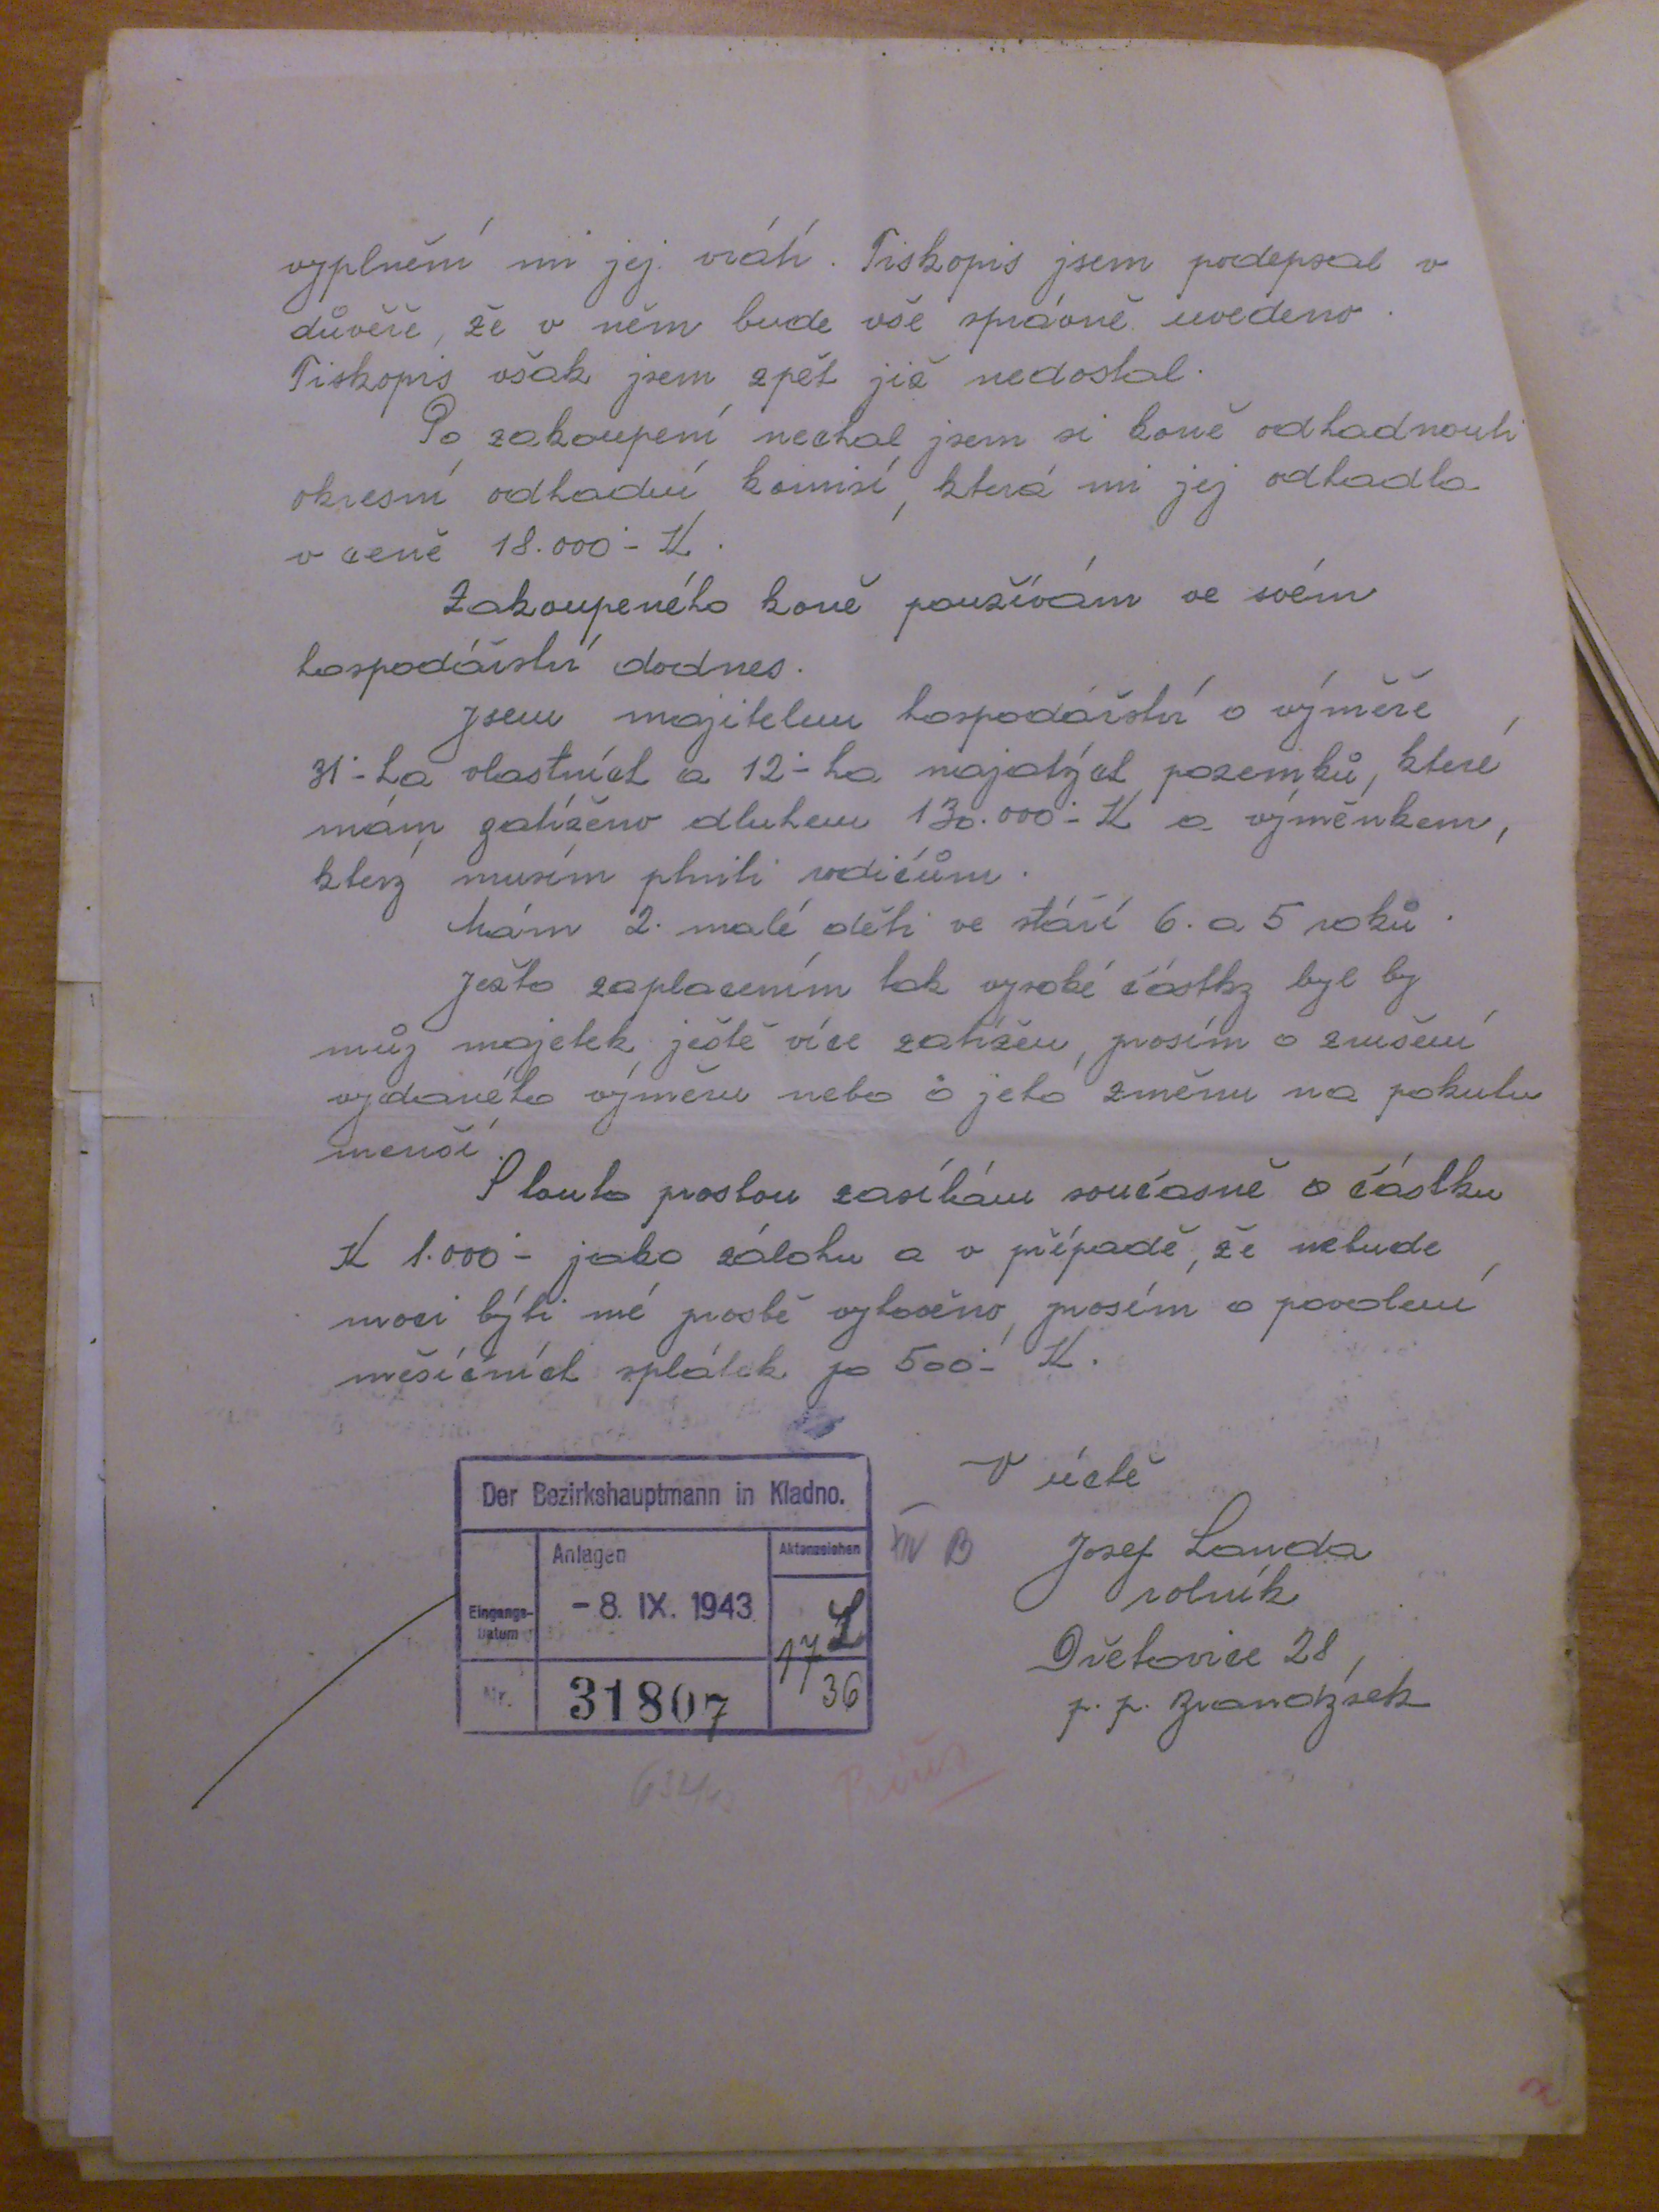 vyplnění mi jej vrátí. Tiskopis jsem podepsal v
důvěře, že v něm bude vše správně uvedeno.
Tiskopis však jsem zpět již nedostal.
Po zakoupení nechal jsem si koně odhadnouti
okresní odhadní komisí, která mi jej odhadla
v ceně 18.000·- K.
Zakoupeného koně používám ve svém
hospodářství dodnes.
Jsem majitelem hospodářství o výměře
31·- ha vlastních a 12·- ha najatých pozemků, které
mám zatíženo dluhem 130.000·- K a výměnkem,
který musím plniti rodičům.
Mám 2. malé děti ve stáří 6. a 5 roků.
Ježto zaplacením tak vysoké částky byl by
můj majetek ještě více zatížen, prosím o zrušení
vydaného výměru nebo o jeho změnu na pokutu
menší.
S touto prosbou zasílám současně o částku
K 1.000·- jako zálohu a v případě, že nebude
moci býti mé prosbě vyhověno, prosím o povolení
měsíčních splátek po 500·- K.
V úctě
Josef Landa
rolník
Dřetovice 28,
p. p. Brandýsek
Der Bezirkshauptmann in Kladno.
Anlagen
Aktenzeichen
XIV B
Eingangs-
datum
- 8. IX. 1943
17
36
Nr.
31807